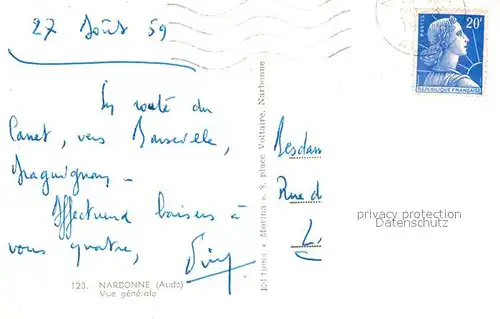 27 Août 59
En route du
Canet, vers Marseille,
Draguignan —
Affectueux baisers à
vous quatre,
123. NARBONNE (Aude)
Vue générale
Editions « Morins », 8, place Voltaire, Narbonne
POSTES
20F
REPUBLIQUE FRANÇAISE
Mesdam
Rue d
privacy protection
Datenschutz